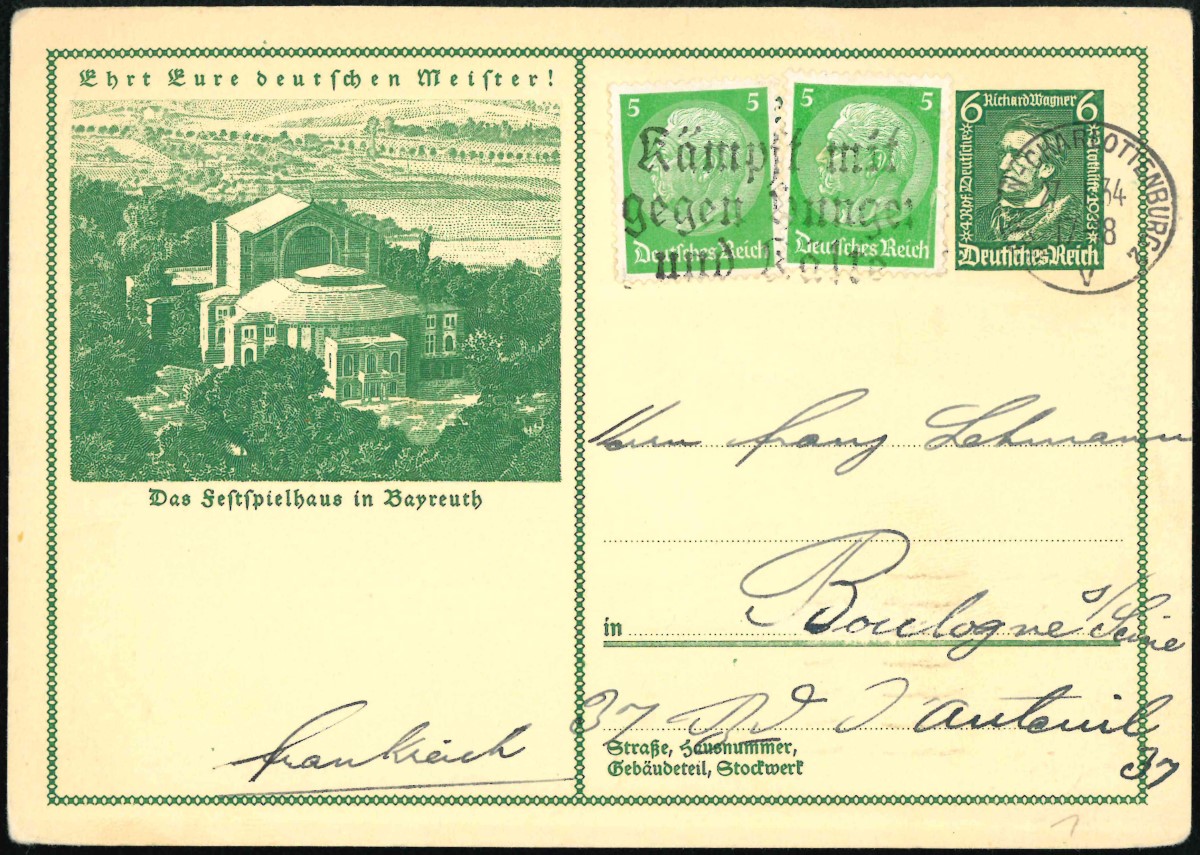 Ehrt Eure deutschen Meister!
Das Festspielhaus in Bayreuth
5 5
Deutsches Reich
5 5
Deutsches Reich
6 Richard Wagner 6
Deutsche
Nothilfe 1933
Deutsches Reich
Kämpft mit
gegen Hunger
und Kälte
CHARLOTTENBURG
34
8
V 2
Herrn Franz Lehmann
in Boulogne s/Seine
37 Bd d'Auteuil
37
Straße, Hausnummer,
Gebäudeteil, Stockwerk
Frankreich
1